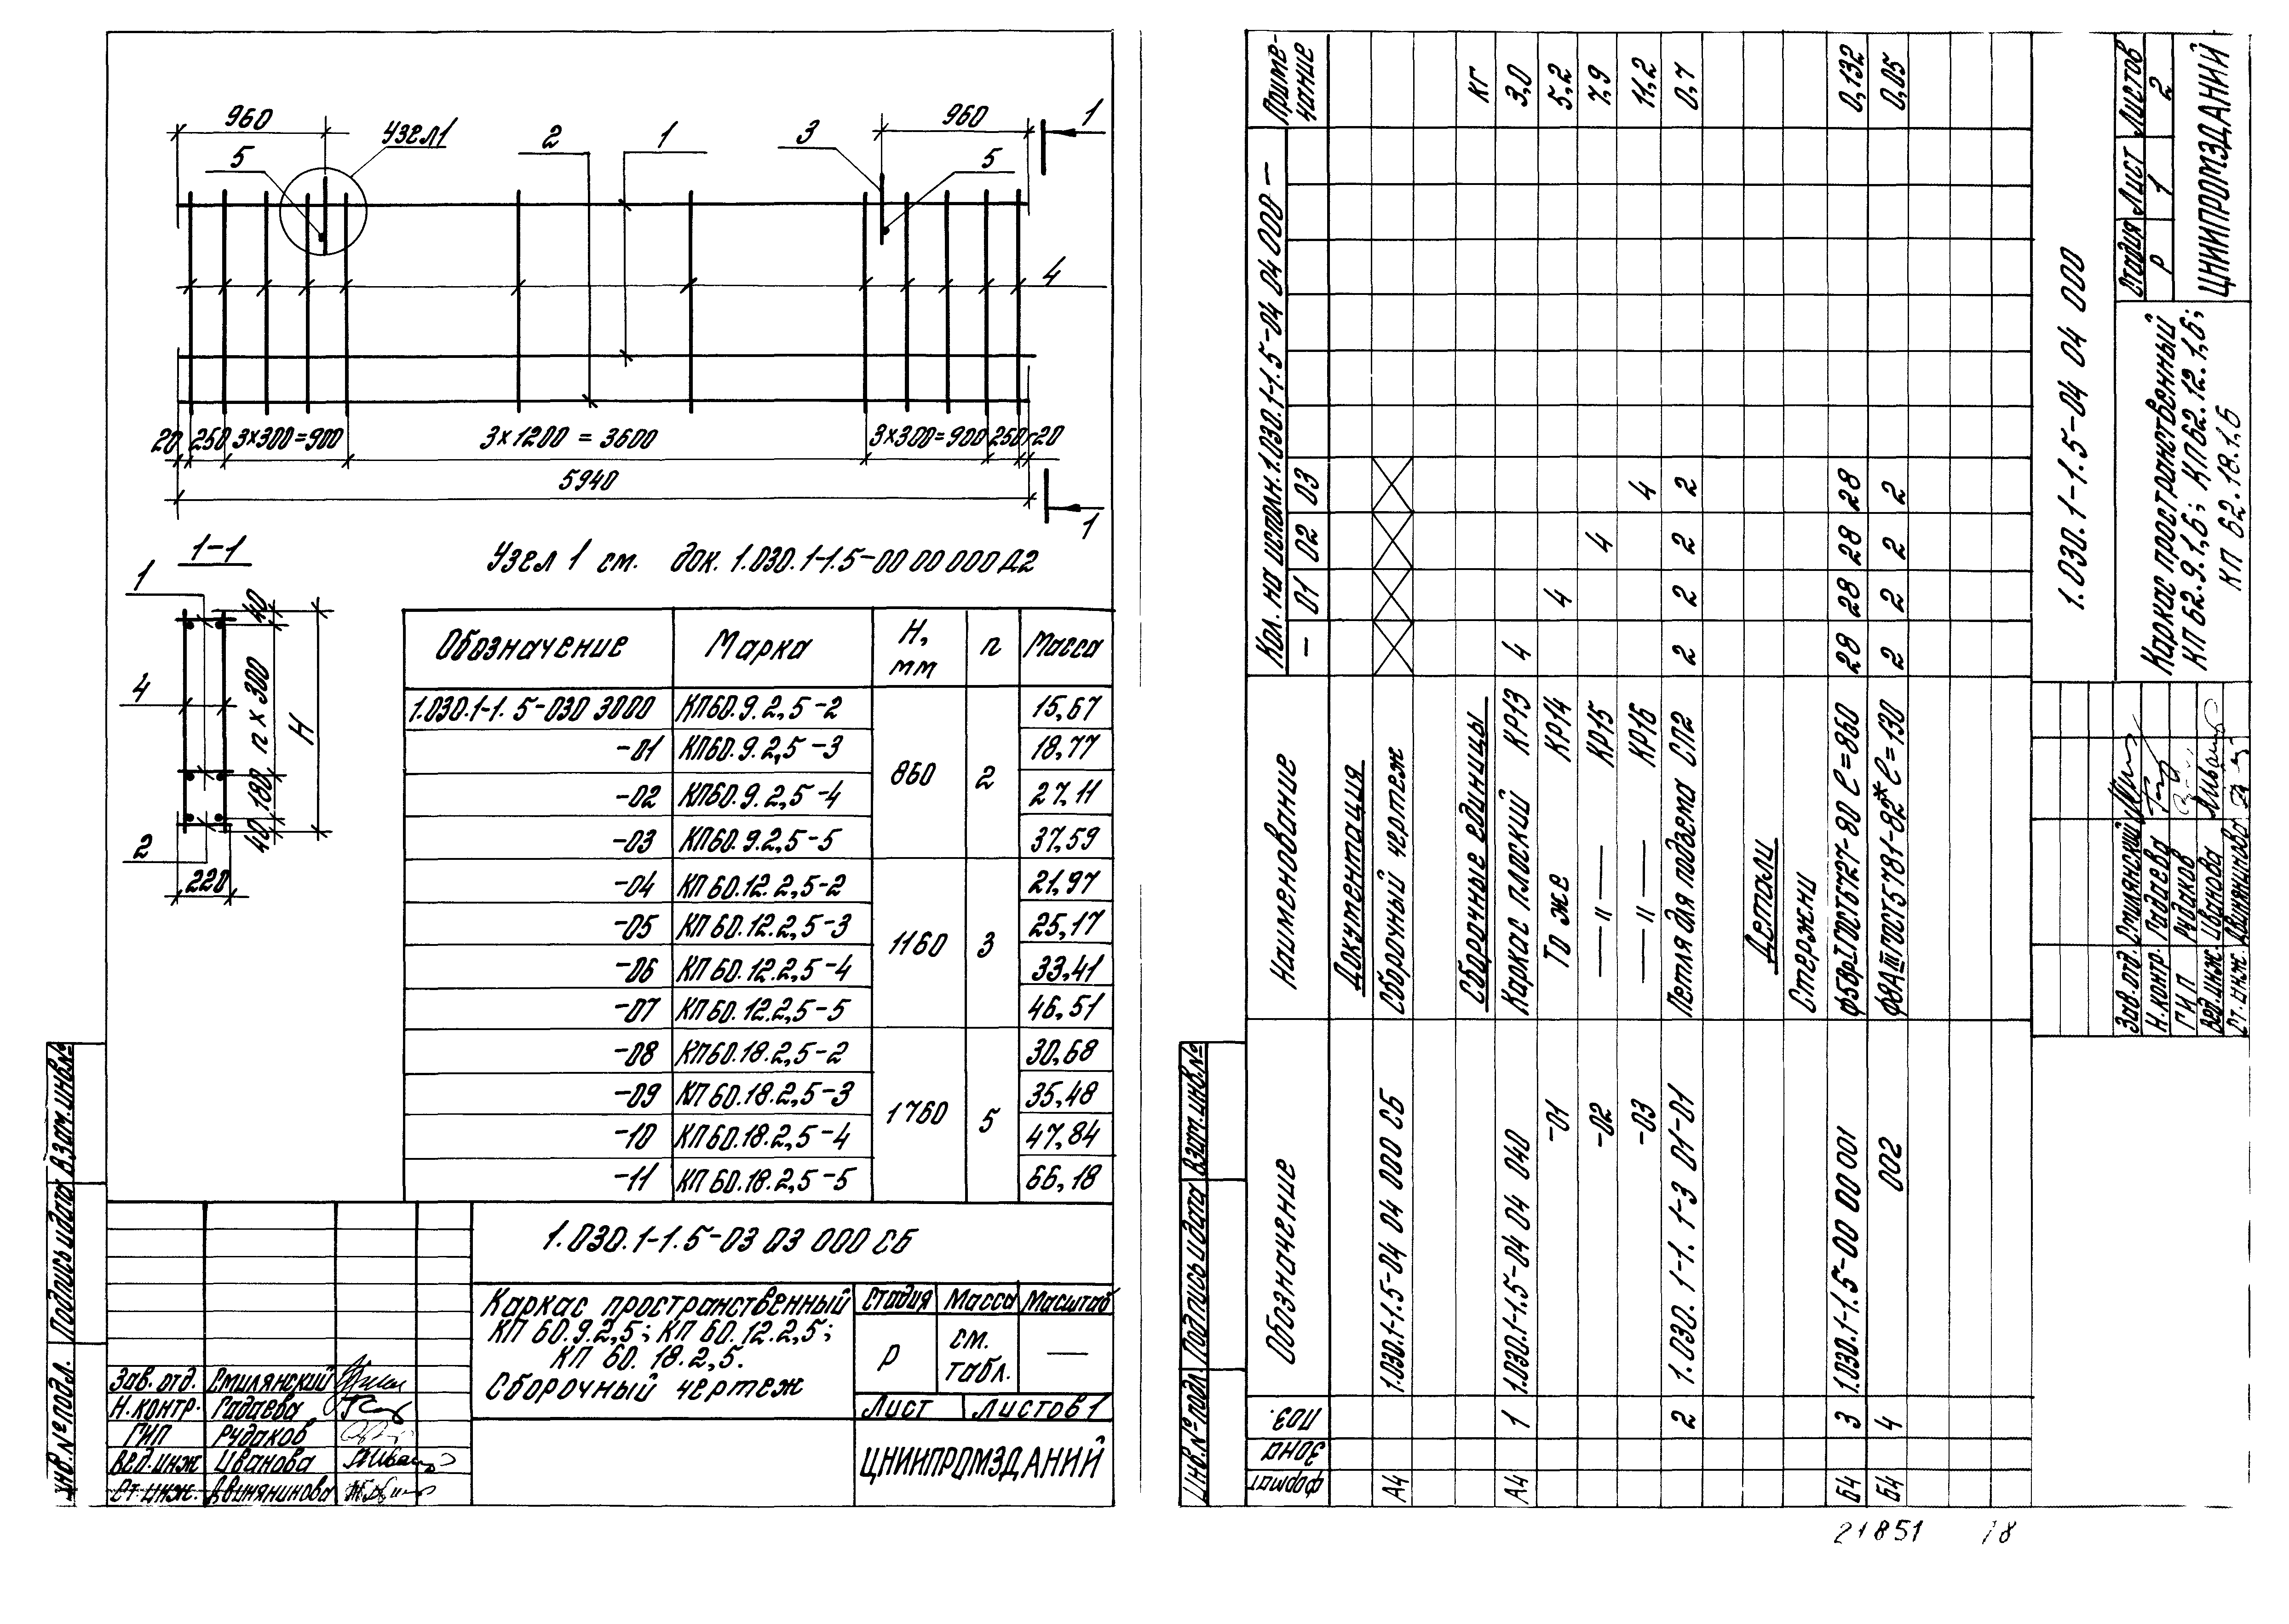 960
960
1
Узел 1
5
2
1
3
5
4
20 250 3×300=900 3×1200 = 3600 3×300=900 250 20
5940
1
1-1
Узел 1 см. док. 1.030.1-1.5-00 00 000 Д2
1
4
2
40
n × 300
180
40
H
220
Обозначение Марка H, мм n Масса
1.030.1-1.5-030 3000 КП60.9.2,5-2 860 2 15,67
-01 КП60.9.2,5-3 18,77
-02 КП60.9.2,5-4 27,11
-03 КП60.9.2,5-5 37,59
-04 КП 60.12.2,5-2 1160 3 21,97
-05 КП 60.12.2,5-3 25,17
-06 КП 60.12.2,5-4 33,41
-07 КП 60.12.2,5-5 46,51
-08 КП60.18.2,5-2 1760 5 30,68
-09 КП 60.18.2,5-3 35,48
-10 КП 60.18.2,5-4 47,84
-11 КП 60.18.2,5-5 66,18
1.030.1-1.5-03 03 000 СБ
Каркас пространственный
КП 60.9.2,5; КП 60.12.2,5;
КП 60.18.2,5.
Сборочный чертеж
Стадия Масса Масштаб
Р см. табл. —
Лист Листов 1
ЦНИИПРОМЗДАНИЙ
Зав. отд. Смилянский
Н. контр. Гадаева
ГИП Рудаков
Вед. инж Иванова
Ст. инж. Двинянинова
Инв. № подл. Подпись и дата Взам. инв. №
Формат Зона Поз. Обозначение Наименование Кол. на исполн. 1.030.1-1.5-04 04 000 — Примечание
— 01 02 03
Документация
А4 1.030.1-1.5-04 04 000 СБ Сборочный чертеж
Сборочные единицы кг
А4 1 1.030.1-1.5-04 04 040 Каркас плоский КР13 4 3,0
-01 То же КР14 4 5,2
-02 —"— КР15 4 7,9
-03 —"— КР16 4 11,2
2 1.030.1-1.1-3 01-01 Петля для подъема СП2 2 2 2 2 0,7
Детали
Стержни
Б4 3 1.030.1-1.5-00 00 001 ф5ВрI ГОСТ6727-80 ℓ=860 28 28 28 28 0,132
Б4 4 002 ф8АIII ГОСТ5781-82* ℓ=130 2 2 2 2 0,05
1.030.1-1.5-04 04 000
Каркас пространственный
КП 62.9.1,6; КП 62.12.1,6;
КП 62.18.1,6
Стадия Лист Листов
Р 1 2
ЦНИИПРОМЗДАНИЙ
Зав. отд. Смилянский
Н. контр. Гадаева
ГИП Рудаков
Вед. инж Иванова
Ст. инж. Двинянинова
Инв. № подл. Подпись и дата Взам. инв. №
21851 18